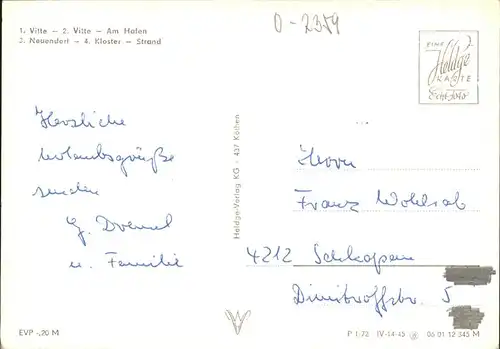 1. Vitte – 2. Vitte – Am Hafen
3. Neuendorf – 4. Kloster – Strand
O-2359
EINE
Heldge
KARTE
Echt Foto
Herzliche
Urlaubsgrüße
senden
G.
u. Familie
Heldge-Verlag KG · 437 Köthen
Herrn
Franz Wohlrab
4212 Schkopau
Dimitroffstr. 5
EVP -,20 M
P 1/72 IV-14-45 06 01 12 345 M